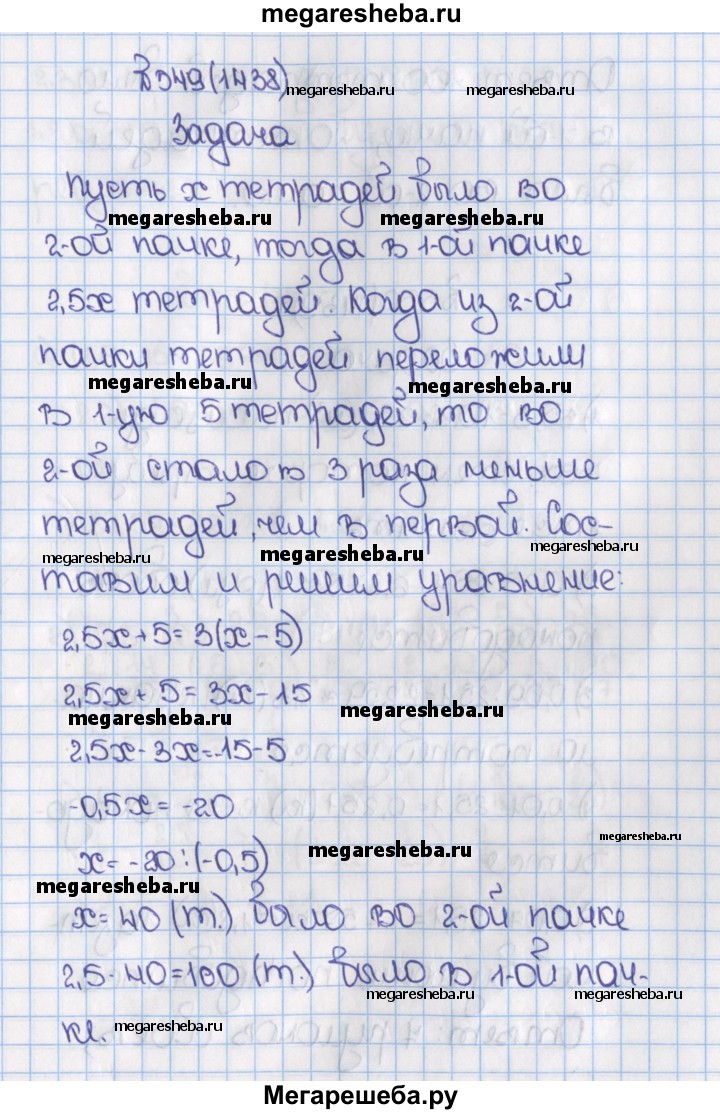 megaresheba.ru
№349(1438) megaresheba.ru
Задача
Пусть x тетрадей было во
megaresheba.ru megaresheba.ru
2-ой пачке, тогда в 1-ой пачке
2,5x тетрадей. Когда из 2-ой
пачки тетрадей переложили
megaresheba.ru megaresheba.ru
в 1-ую 5 тетрадей, то во
2-ой стало в 3 раза меньше
тетрадей, чем в первой. Сос-
megaresheba.ru megaresheba.ru megaresheba.ru
тавим и решим уравнение:
2,5x+5=3(x-5)
2,5x+5=3x-15
megaresheba.ru megaresheba.ru
2,5x-3x=-15-5
-0,5x=-20
megaresheba.ru
x=-20:(-0,5) megaresheba.ru
megaresheba.ru
x=40 (т.) было во 2-ой пачке
2,5·40=100 (т.) было в 1-ой пач-
megaresheba.ru megaresheba.ru
ке. megaresheba.ru
Мегарешеба.ру